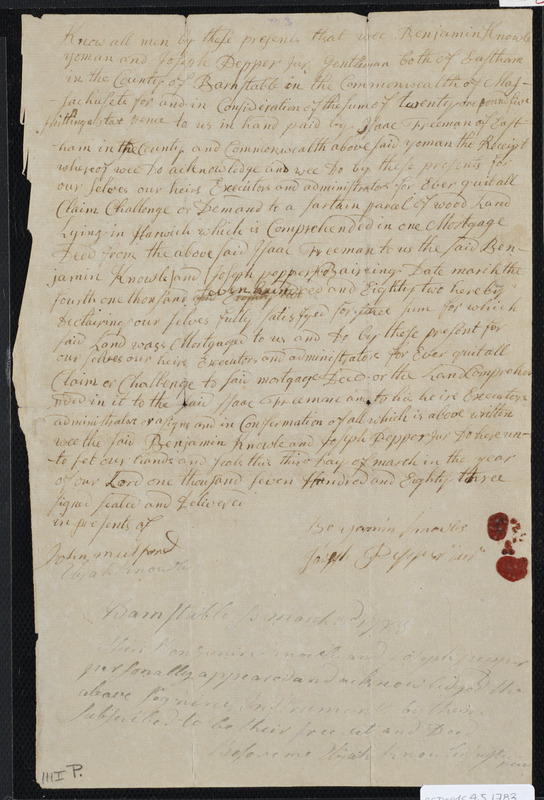 Know all men by these presents that wee Benjamin Knowle
yoman and Joseph Pepper Jur Gentleman both of Eastham
in the County of Barnstable in the Commonwealth of Mas-
sachusets for and in Consideration of the sum of twenty one pounds five
shillings
to us in hand paid by Isaac Freeman of East-
ham in the County and Commonwealth above said yoman the Receipt
whereof wee Do acknowledge and wee Do by these presents for
our selves our heirs Executors and administrators for Ever quit all
Claim Challenge or Demand to a sartain parcel of wood Land
Lying in Harwich which is Comprehended in one Mortgage
Deed from the above said Isaac Freeman to us the said Ben-
jamin Knowle and Joseph pepper Jur Baireing Date march the
fourth one thousand seven hundred and Eighty two hereby
Declairing our selves fully satisfyed for said sum for which
said Land was Mortgaged to us and Do by these present for
our selves our heirs Executors and administrators for Ever quit all
Claim or Challenge to said mortgage Deed or the Land Comprehen
nded in it to the said Isaac Freeman and to his heirs Executors
administrators or asigns and in Confermation of all which is above written
wee the said Benjamin Knowle and Joseph Pepper Jur Do here un-
to set our hands and seals this third Day of march in the year
of our Lord one thousand seven Hundred and Eighty three
signed sealed and Deliverd
in presents of
Benjamin Knowles
John mulford
Joseph Pepper Jur
Elijah Knowles
Barnstable ss march 1783
then Benjamin Knowles and Joseph pepper
personally appeared and acknowledged the
above
Instrument by them
subscribed to be their free act and Deed
before me Elijah Knowles Justice
IIII P.
4 5 1783